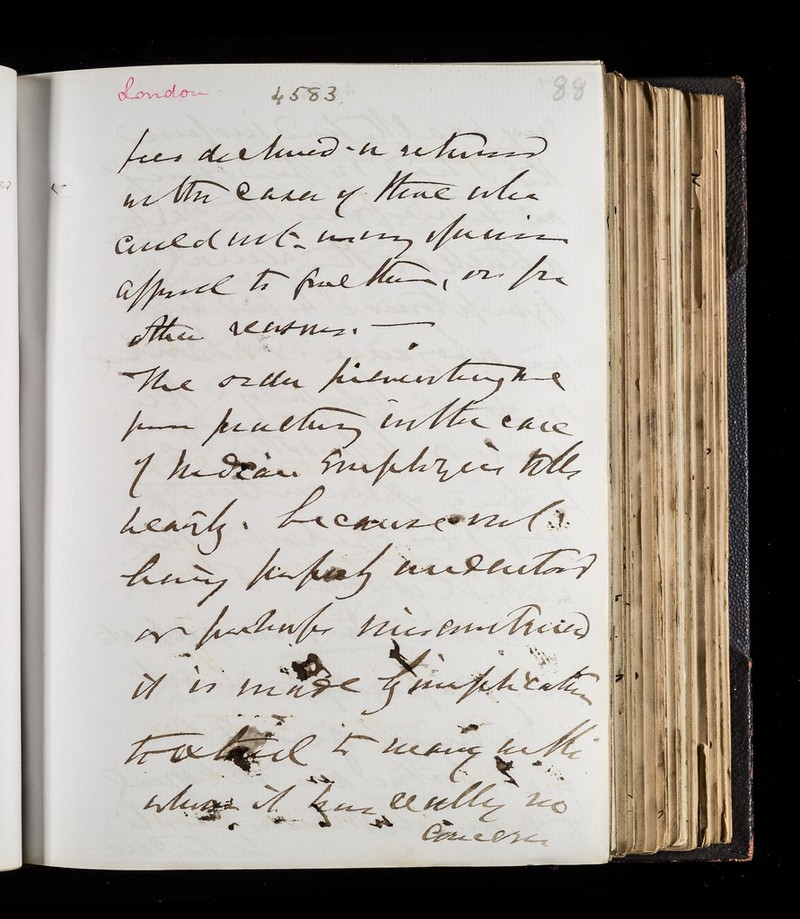 London 4583 88
fees declined or returned
in the case of those who
could not in my opinion
afford to give them, or for
other reasons. —
The order preventing me
from practising in the case
of Indian Employees tells
heavily. because not
being perfectly understood
or perhaps misconstrued
it is made by implication
to extend to many with
whom it has really no
concern